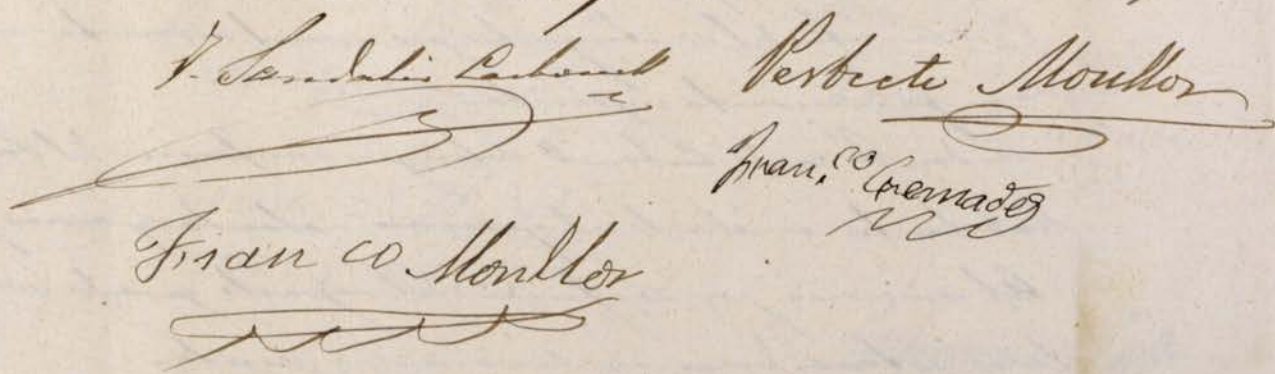 V. Sandalio Carbonell
Perfecto Moullor
Fran.co Cremades
Fran co Moullor